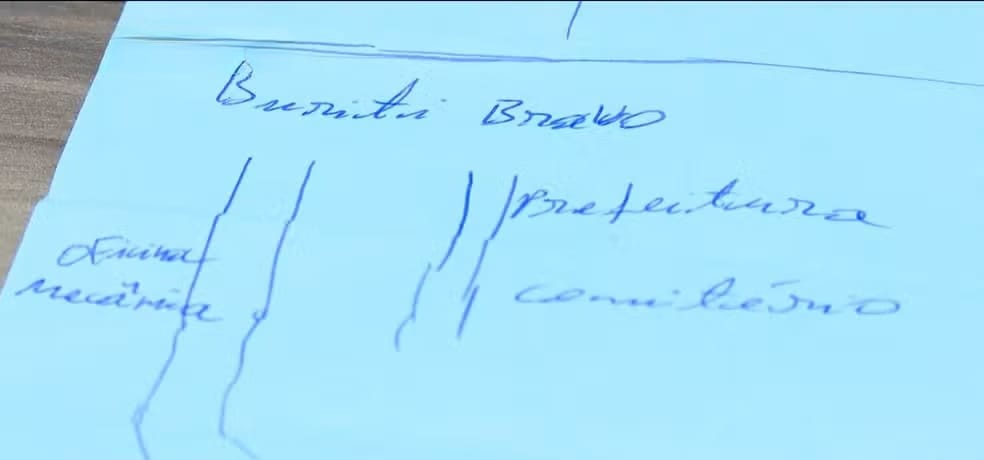 Buriti Bravo
Prefeitura
oficina
mecânica
cemitério